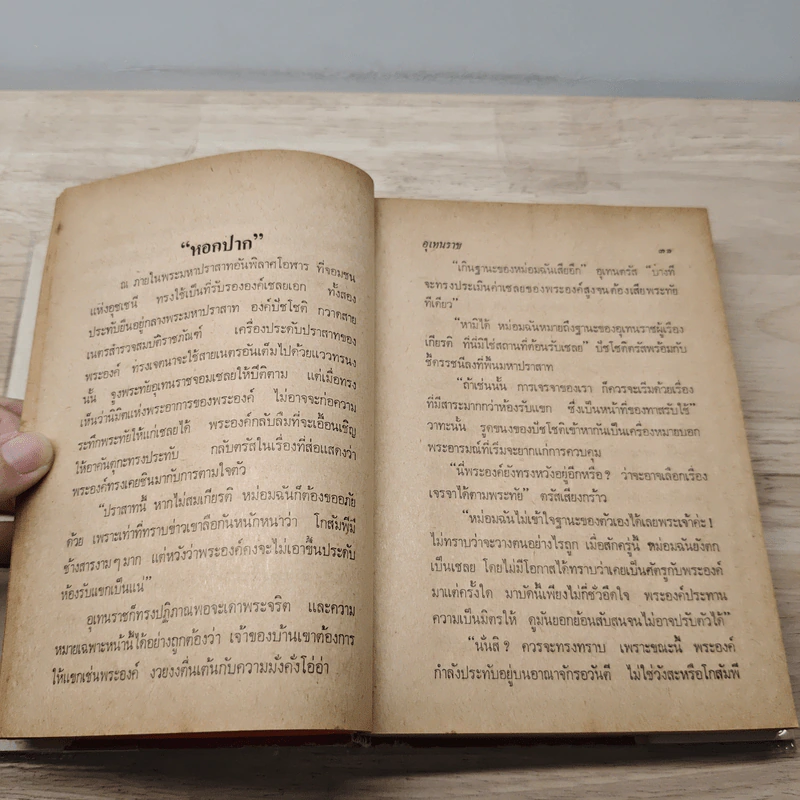 “หอกปาก”
ณ ภายในพระมหาปราสาทอันพิลาศโอฬาร ที่จอมชน
แห่งอุชเชนี ทรงใช้เป็นที่รับรององค์เชลยเอก ทั้งสอง
ประทับยืนอยู่กลางพระมหาปราสาท องค์ปัชโชติ กวาดสาย
เนตรสำรวจสมบัติราชภัณฑ์ เครื่องประดับปราสาทของ
พระองค์ ทรงเจตนาจะใช้สายเนตรอันเต็มไปด้วยแววทรนง
นั้น จูงพระทัยอุเทนราชจอมเชลยให้ปีติตาม แต่เมื่อทรง
เห็นว่านิมิตแห่งพระอาการของพระองค์ ไม่อาจจะก่อความ
ระทึกพระทัยให้แก่เชลยได้ พระองค์กลับลืมที่จะเอื้อนเชิญ
ให้อาคันตุกะทรงประทับ กลับตรัสในเรื่องที่ส่อแสดงว่า
พระองค์ทรงเคยชินมากับการตามใจตัว
“ปราสาทนี้ หากไม่สมเกียรติ หม่อมฉันก็ต้องขออภัย
ด้วย เพราะเท่าที่ทราบข่าวเขาลือกันหนักหนาว่า โกสัมพีมี
ช้างสารงามๆ มาก แต่หวังว่าพระองค์คงจะไม่เอาขึ้นประดับ
ห้องรับแขกเป็นแน่”
อุเทนราชก็ทรงปฏิภาณพอจะเดาพระจริต และความ
หมายเฉพาะหน้านี้ได้อย่างถูกต้องว่า เจ้าของบ้านเขาต้องการ
ให้แขกเช่นพระองค์ งวยงงตื่นเต้นกับความมั่งคั่งโอ่อ่า
อุเทนราช ๓๕
“เกินฐานะของหม่อมฉันเสียอีก” อุเทนตรัส “บางที
จะทรงประเมินค่าเชลยของพระองค์สูงจนต้องเสียพระทัย
ทีเดียว”
“หามิได้ หม่อมฉันหมายถึงฐานะของอุเทนราชผู้เรือง
เกียรติ ที่นี่มิใช่สถานที่ต้อนรับเชลย” ปัชโชติตรัสพร้อมกับ
ชี้ดรรชนีลงที่พื้นมหาปราสาท
“ถ้าเช่นนั้น การเจรจาของเรา ก็ควรจะเริ่มด้วยเรื่อง
ที่มีสาระมากกว่าห้องรับแขก ซึ่งเป็นหน้าที่ของทาสรับใช้”
วาทะนั้น รูดขนงของปัชโชติเข้าหากันเป็นเครื่องหมายบอก
พระอารมณ์ที่เริ่มจะยากแก่การควบคุม
“นี่พระองค์ยังทรงหวังอยู่อีกหรือ? ว่าจะอาจเลือกเรื่อง
เจรจาได้ตามพระทัย” ตรัสเสียงกร้าว
“หม่อมฉันไม่เข้าใจฐานะของตัวเองได้เลยพระเจ้าค่ะ!
ไม่ทราบว่าจะวางตนอย่างไรถูก เมื่อสักครู่นี้ หม่อมฉันยังตก
เป็นเชลย โดยไม่มีโอกาสได้ทราบว่าเคยเป็นศัตรูกับพระองค์
มาแต่ครั้งใด มาบัดนี้เพียงไม่กี่ชั่วอึดใจ พระองค์ประทาน
ความเป็นมิตรให้ ดูมันยอกย้อนสับสนจนไม่อาจปรับตัวได้”
“นั่นสิ? ควรจะทรงทราบ เพราะขณะนี้ พระองค์
กำลังประทับอยู่บนอาณาจักรอวันตี ไม่ใช่วังสะหรือโกสัมพี